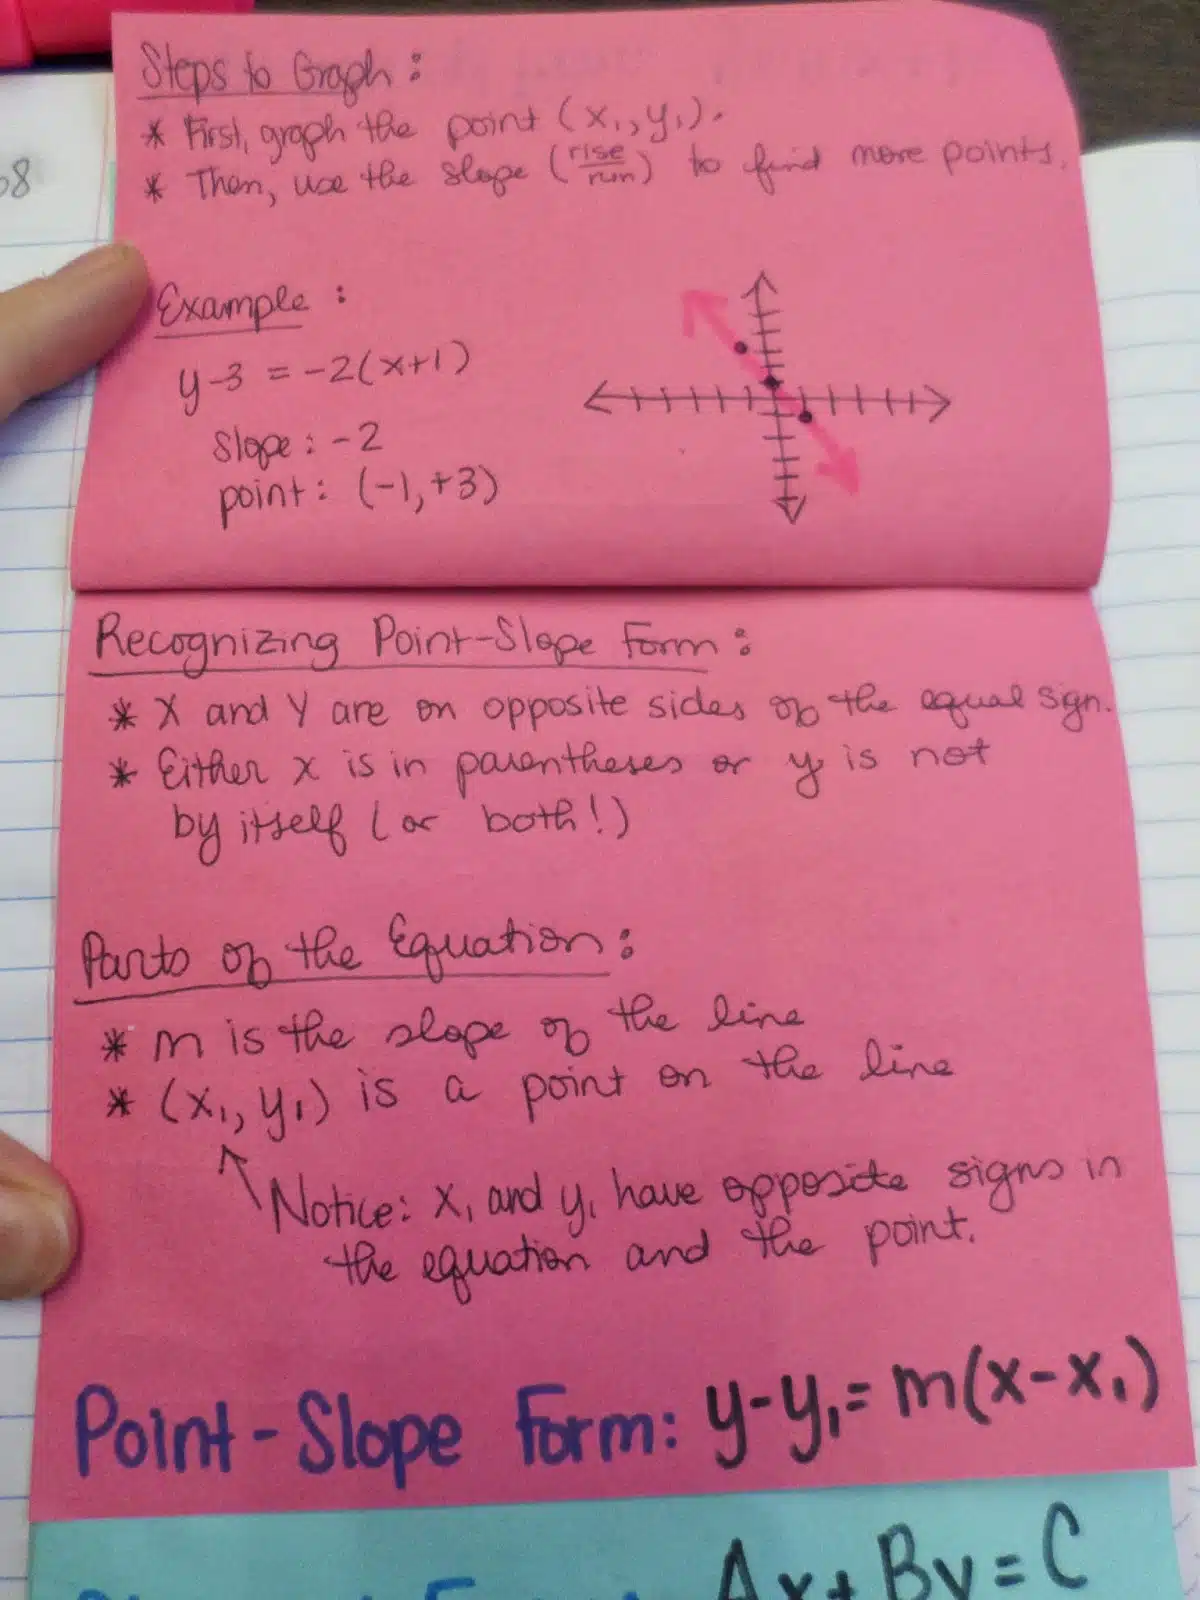 Steps to Graph:
* First, graph the point (x₁, y₁).
* Then, use the slope (rise/run) to find more points.
Example:
y-3 = -2(x+1)
slope: -2
point: (-1,+3)
Recognizing Point-Slope Form:
* X and Y are on opposite sides of the equal sign.
* Either x is in parentheses or y is not
by itself (or both!)
Parts of the Equation:
* m is the slope of the line
* (x₁, y₁) is a point on the line
Notice: x₁ and y₁ have opposite signs in
the equation and the point.
Point-Slope Form: y-y₁=m(x-x₁)
Ax+By=C